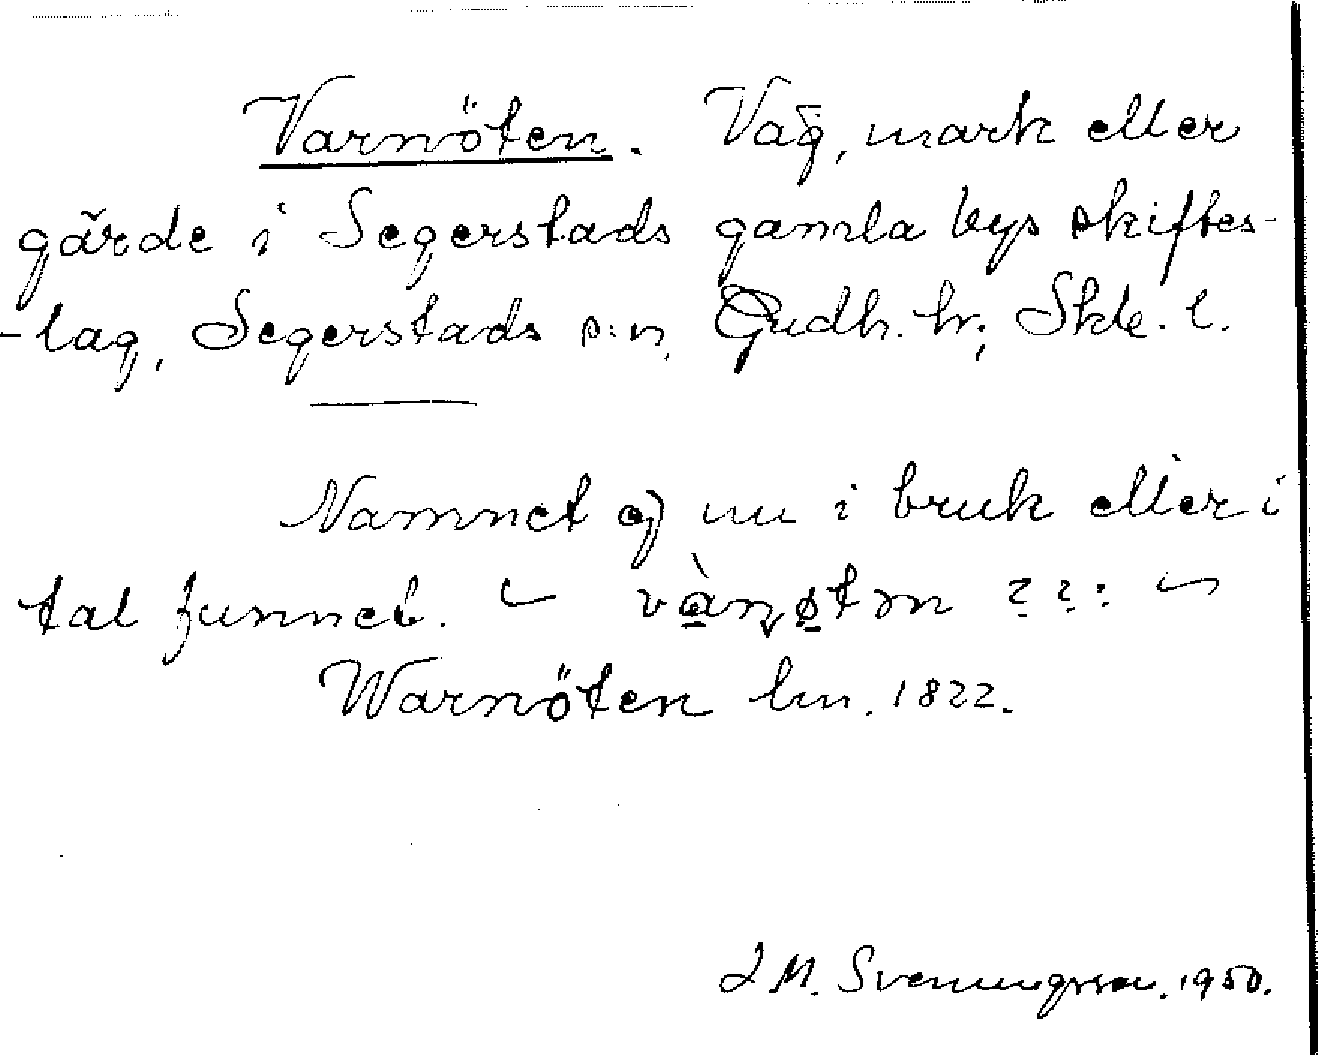 Varnöten. Väg, mark eller
gärde i Segerstads gamla bys skiftes-
-lag, Segerstads s:n, Gudh. hr; Skbr. l.
Namnet ej nu i bruk eller i
tal funnet. –
Warnöten lm. 1822.
J M. Svenungsson. 1950.